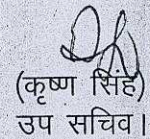 (कृष्ण सिंह)
उप सचिव।